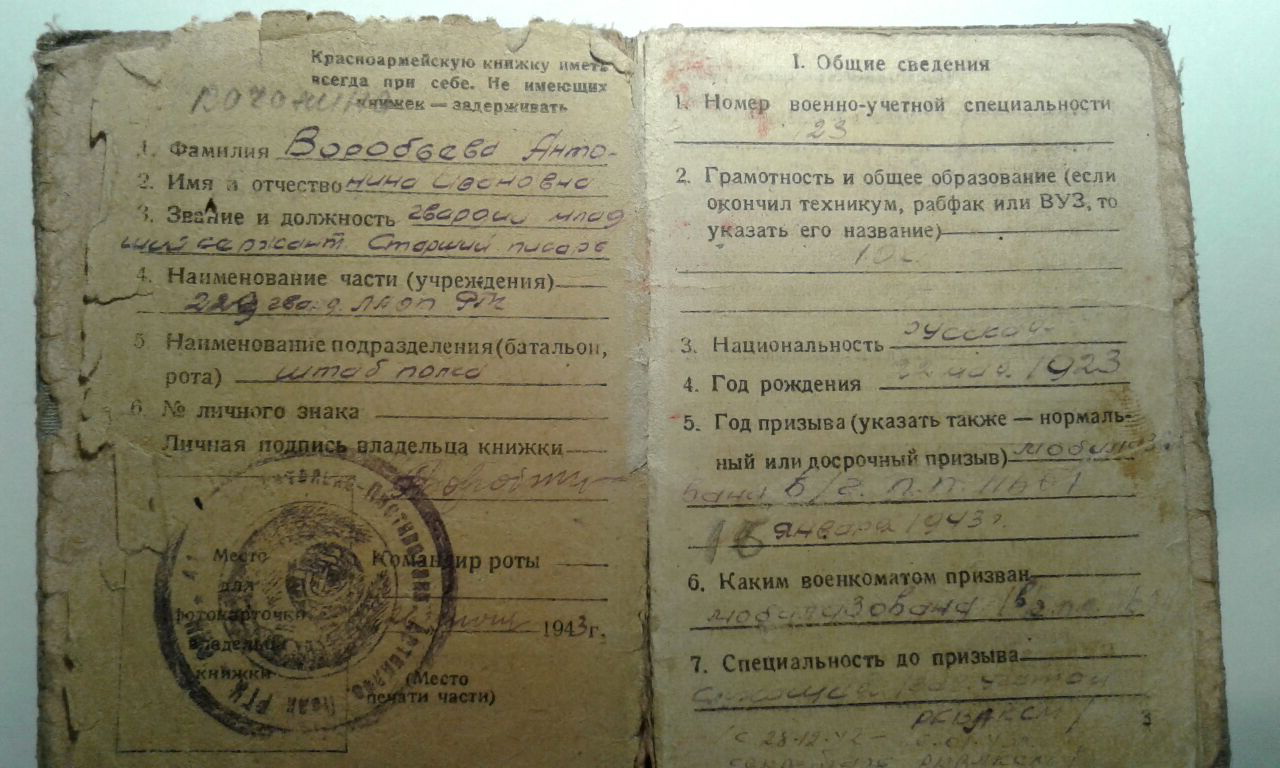 Красноармейскую книжку иметь
всегда при себе. Не имеющих
книжек — задерживать
1. Фамилия Воробьева Анто-
2. Имя и отчество нина Ивановна
3. Звание и должность гвардии млад
ший сержант. Старший писарь
4. Наименование части (учреждения)
5. Наименование подразделения (батальон,
рота) штаб полка
6. № личного знака
Личная подпись владельца книжки
Место
для
фотокарточки
владельца
книжки
Командир роты
1943 г.
(Место
печати части)
I. Общие сведения
1. Номер военно-учетной специальности
23
2. Грамотность и общее образование (если
окончил техникум, рабфак или ВУЗ, то
указать его название)
3. Национальность русская
4. Год рождения 22 мая 1923
5. Год призыва (указать также — нормаль-
ный или досрочный призыв)
16 января 1943 г.
6. Каким военкоматом призван
мобилизована
7. Специальность до призыва
3